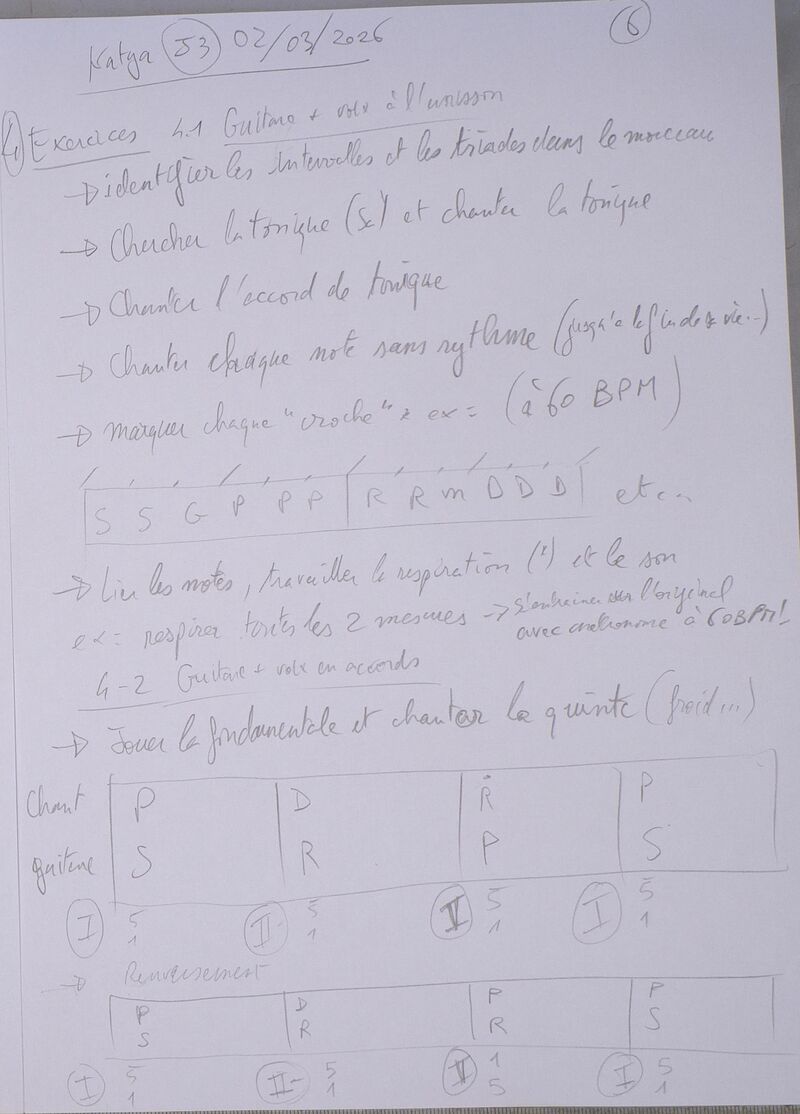 Katya J3 02/03/2026 6
4 Exercices 4.1 Guitare + voix à l'unisson
→ identifier les intervalles et les triades dans le morceau
→ Chercher la tonique (S) et chanter la tonique
→ Chanter l'accord de tonique
→ Chanter chaque note sans rythme (jusqu'à la fin de vie...)
→ marquer chaque "croche" ex = (à 60 BPM)
S S G P P P R R m D D D etc..
→ Lier les notes, travailler la respiration (') et le son
ex = respirer toutes les 2 mesures → s'entrainer sur l'original
avec metronome à 60BPM!
4-2 Guitare + voix en accords
→ Jouer la fondamentale et chanter la quinte (froid...)
Chant P D Ṙ P
guitare S R P S
I 5 II- 5 V 5 I 5
1 1 1 1
→ Renversement
P D P P
S R R S
I 5 II- 5 V 1 I 5
1 1 5 1